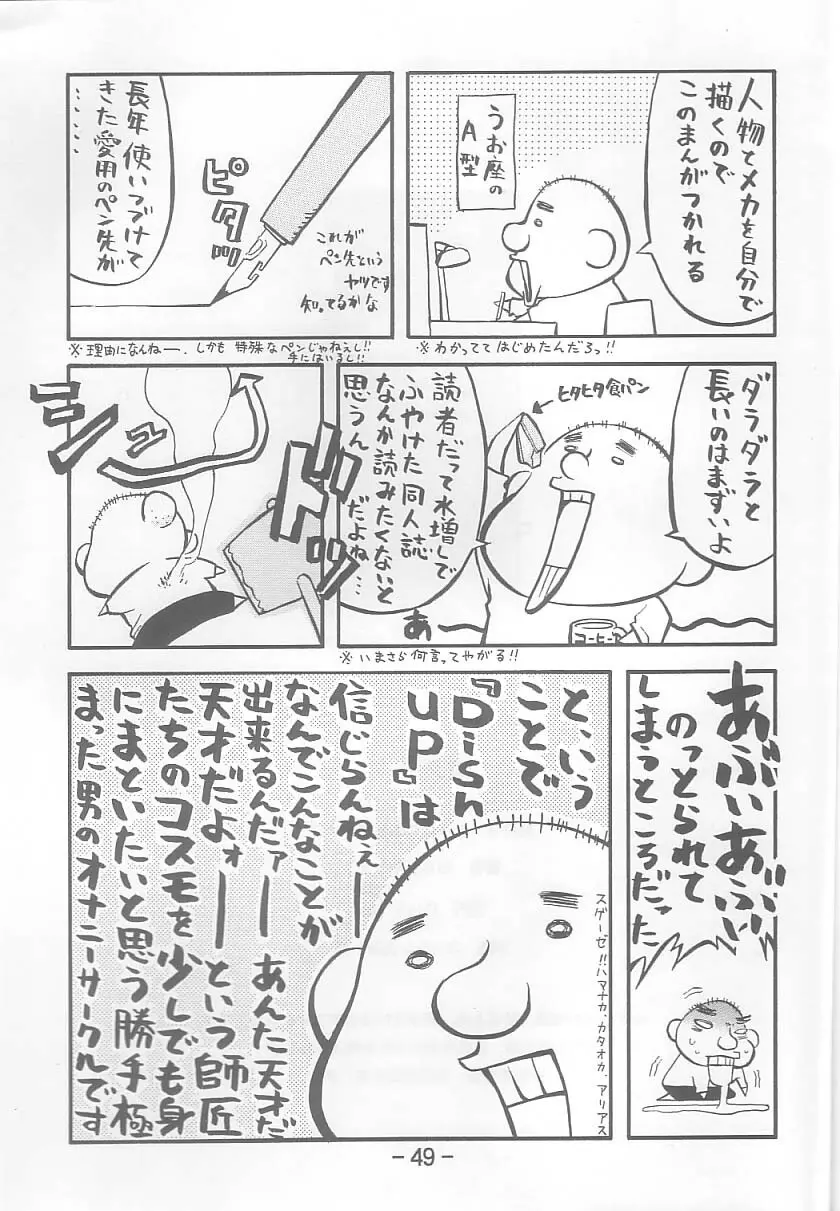 人物とメカを自分で
描くので
このまんがつかれる
うお座の
A型
※わかっててはじめたんだろっ!!
長年使いつづけて
きた愛用のペン先が
‥‥‥‥
ピタッ
これが
ペン先という
ヤツです
知ってるかな
※理由になんねー.しかも特殊なペンじゃねぇし!!
手にはいるし!!
ダラダラと
長いのはまずいよ
ヒタヒタ食パン
読者だって水増しで
ふやけた同人誌
なんか読みたくないと
思うん だよね…
あー
コーヒー
※いまさら何言ってやがる!!
ギュン
ドドッ
あぶいあぶい
のっとられて
しまうところだった
と、いう
ことで
『Dish
up』は
信じらんねぇー
なんでこんなことが
出来るんだァー あんた天才だ
天才だよォー という師匠
たちのコスモを少しでも身
にまといたいと思う勝手極
まった男のオナニーサークルです
スゲーゼ!!ハマナカ.カタオカ.アリアス
-49-